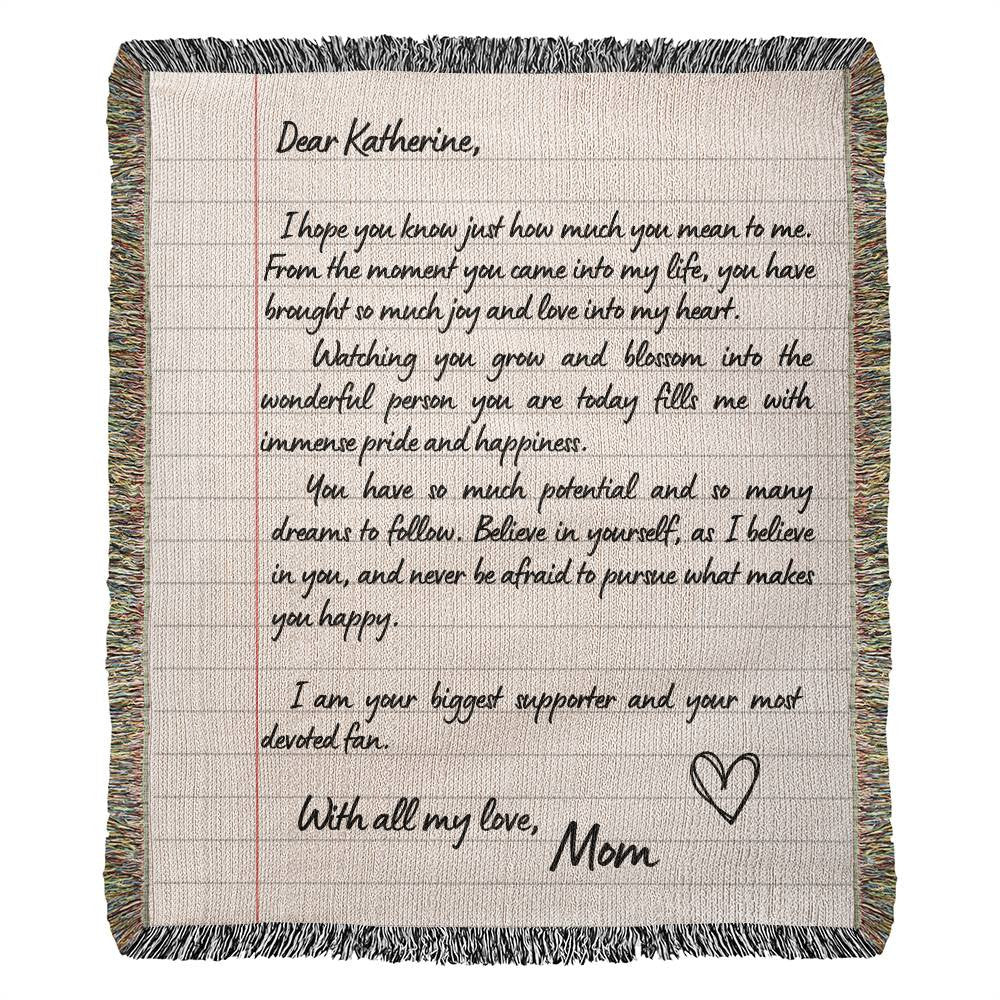 Dear Katherine,
I hope you know just how much you mean to me.
From the moment you came into my life, you have
brought so much joy and love into my heart.
Watching you grow and blossom into the
wonderful person you are today fills me with
immense pride and happiness.
You have so much potential and so many
dreams to follow. Believe in yourself, as I believe
in you, and never be afraid to pursue what makes
you happy.
I am your biggest supporter and your most
devoted fan.
With all my love,
Mom